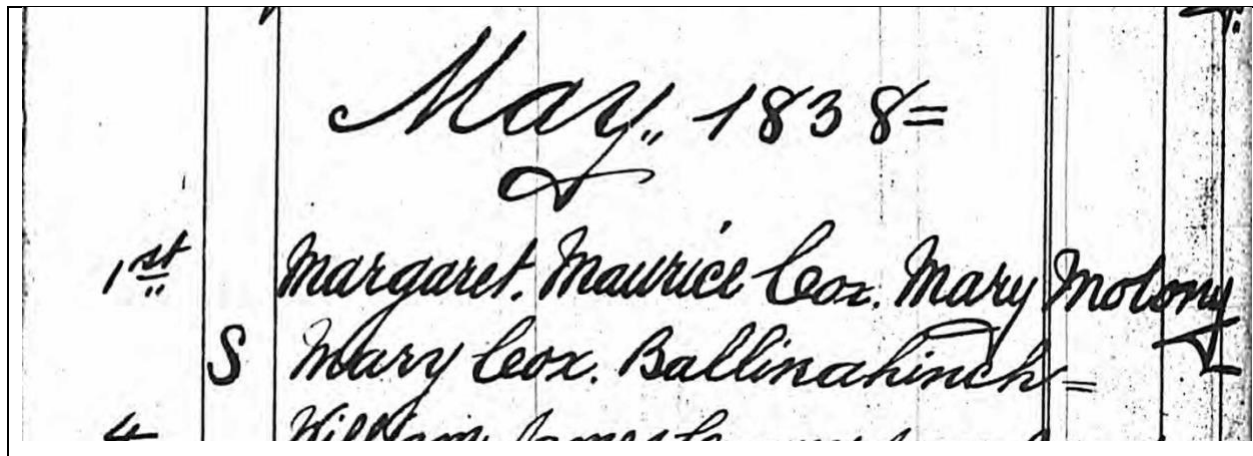 May,, 1838=
1st Margaret. Maurice Cox. Mary Molony
S Mary Cox. Ballinahinch=
4 William James